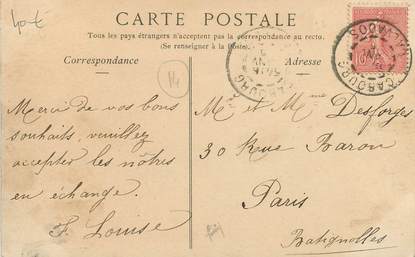 40 €
CARTE POSTALE
Tous les pays étrangers n'acceptent pas la correspondance au recto.
(Se renseigner à la Poste).
Correspondance
Adresse
CABOURG
CALVADOS
14
Merci de vos bons
souhaits, veuillez
accepter les nôtres
en échange.
F. Louise
Mr et Mme Desforges
30 Rue Baron
Paris
Batignolles